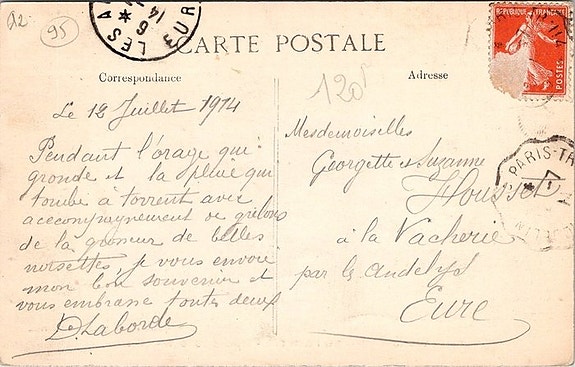 A2-
95
LES AN
6
14
EUR
CARTE POSTALE
Correspondance
Adresse
120f
RÉPUBLIQUE FRANÇAISE
POSTES
Le 12 Juillet 1914
Pendant l'orage qui
gronde et la pluie qui
tombe à torrent avec
accompagnement de grelons
de la grosseur de belles
noisettes, je vous envoie
mon bon souvenir et
vous embrasse toutes deux
D. Laborde
Mesdemoiselles
Georgette et Suzanne
Housset
à la Vacherie
par le andelys
Eure
PARIS-TR